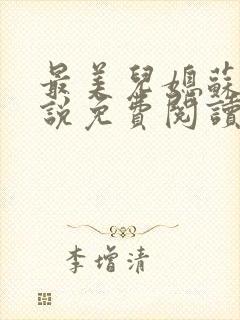 最美兒媳蘇
說免費閱讀
李增清